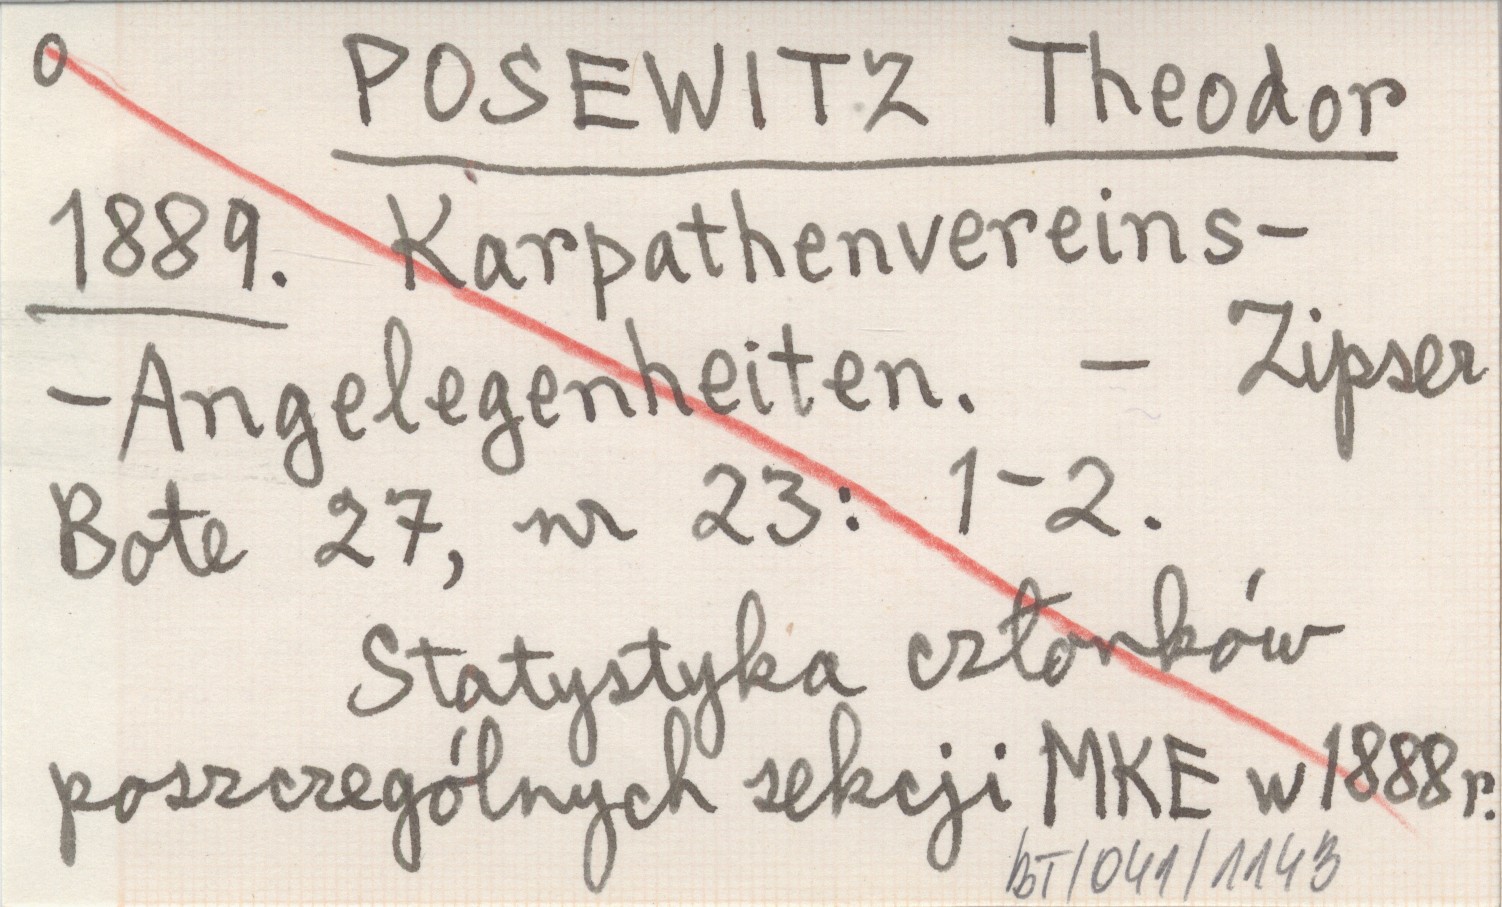 o POSEWITZ Theodor
1889. Karpathenvereins-
-Angelegenheiten. – Zipser
Bote 27, nr 23: 1-2.
Statystyka członków
poszczególnych sekcji MKE w 1888 r.
bT/041/1143